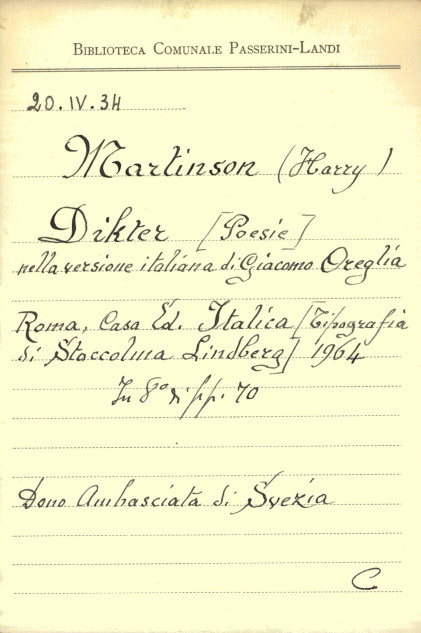 BIBLIOTECA COMUNALE PASSERINI-LANDI
20.IV.34
Martinson (Harry)
Dikter [Poesie]
nella versione italiana di Giacomo Oreglia
Roma, Casa Ed. Italica [Tipografia
di Stoccolma Lindberg] 1964
In 8° di pp. 70
Dono Ambasciata di Svezia
C